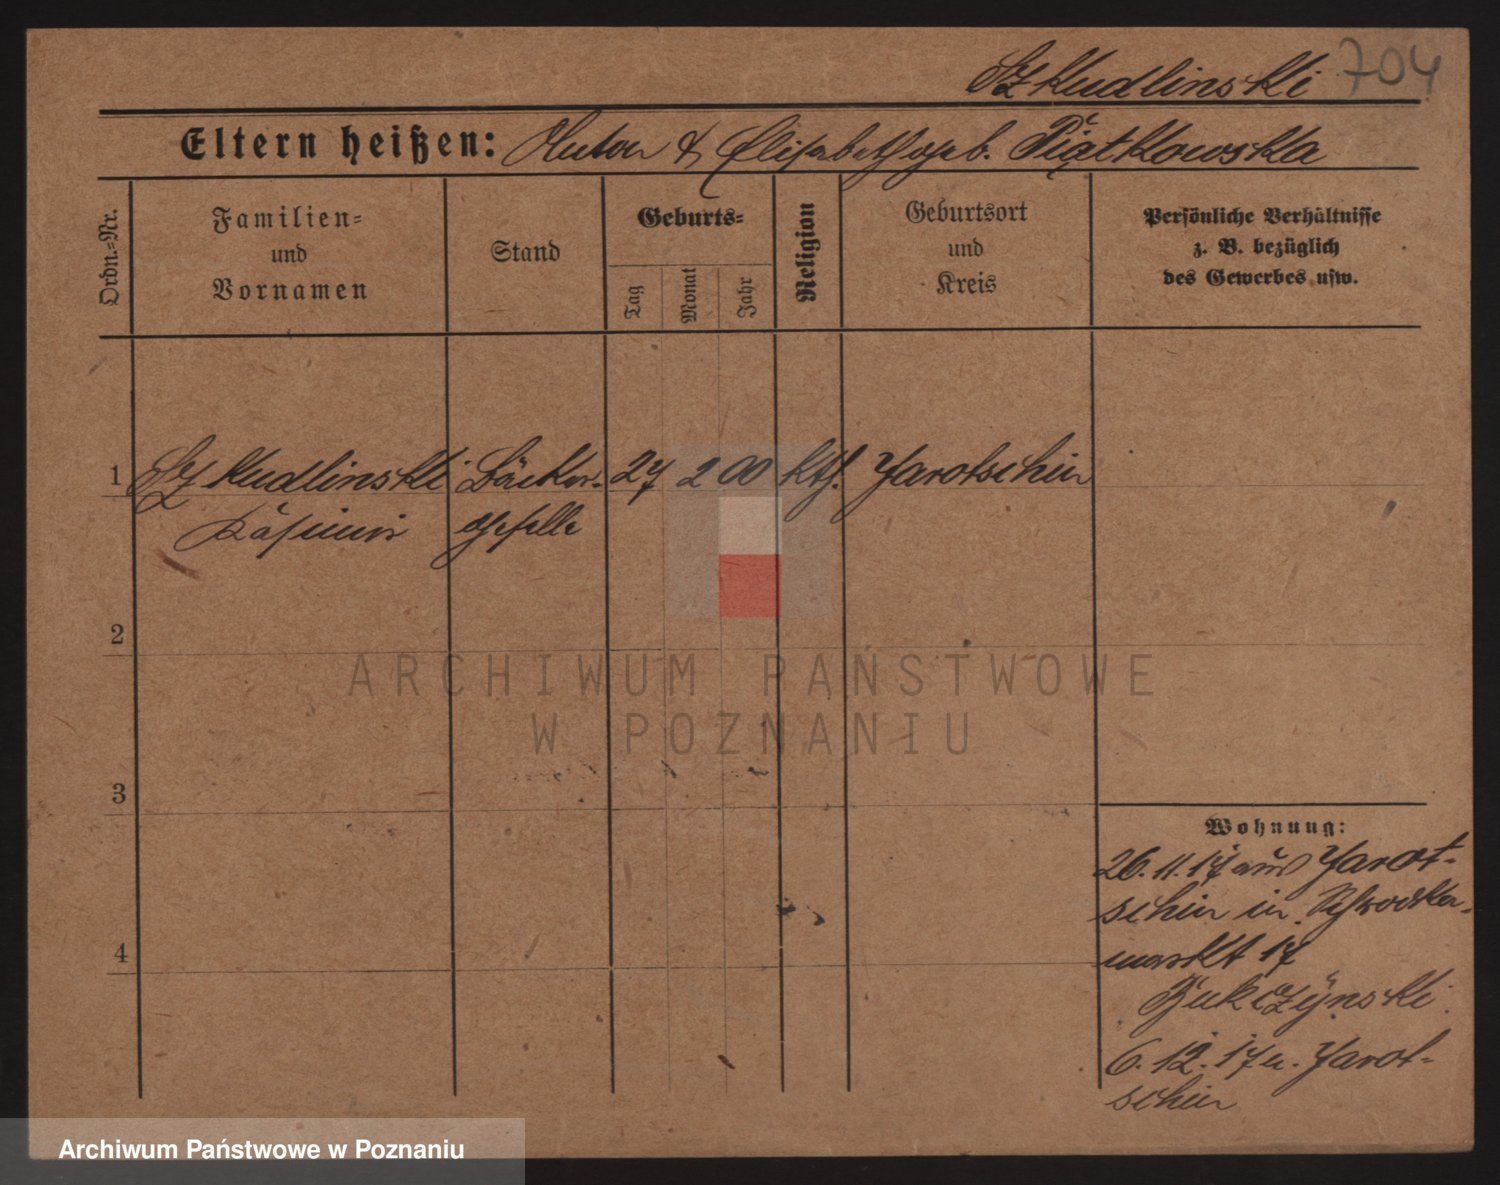 Szkudlinski 704
Eltern heißen: Anton & Elisabeth geb. Piątkowska
Ordn.-Nr.
Familien-
und
Vornamen
Stand
Geburts-
Tag
Monat
Jahr
Religion
Geburtsort
und
Kreis
Persönliche Verhältnisse
z. B. bezüglich
des Gewerbes usw.
1 Szkudlinski Bäcker- 27 2 00 kth. Jarotschin
Kasimir geselle
2
ARCHIWUM PAŃSTWOWE
W POZNANIU
3
Wohnung:
26.11.17 aus Jarot-
schin in
4
markt 17
6.12.17 n. Jarot-
schin
Archiwum Państwowe w Poznaniu